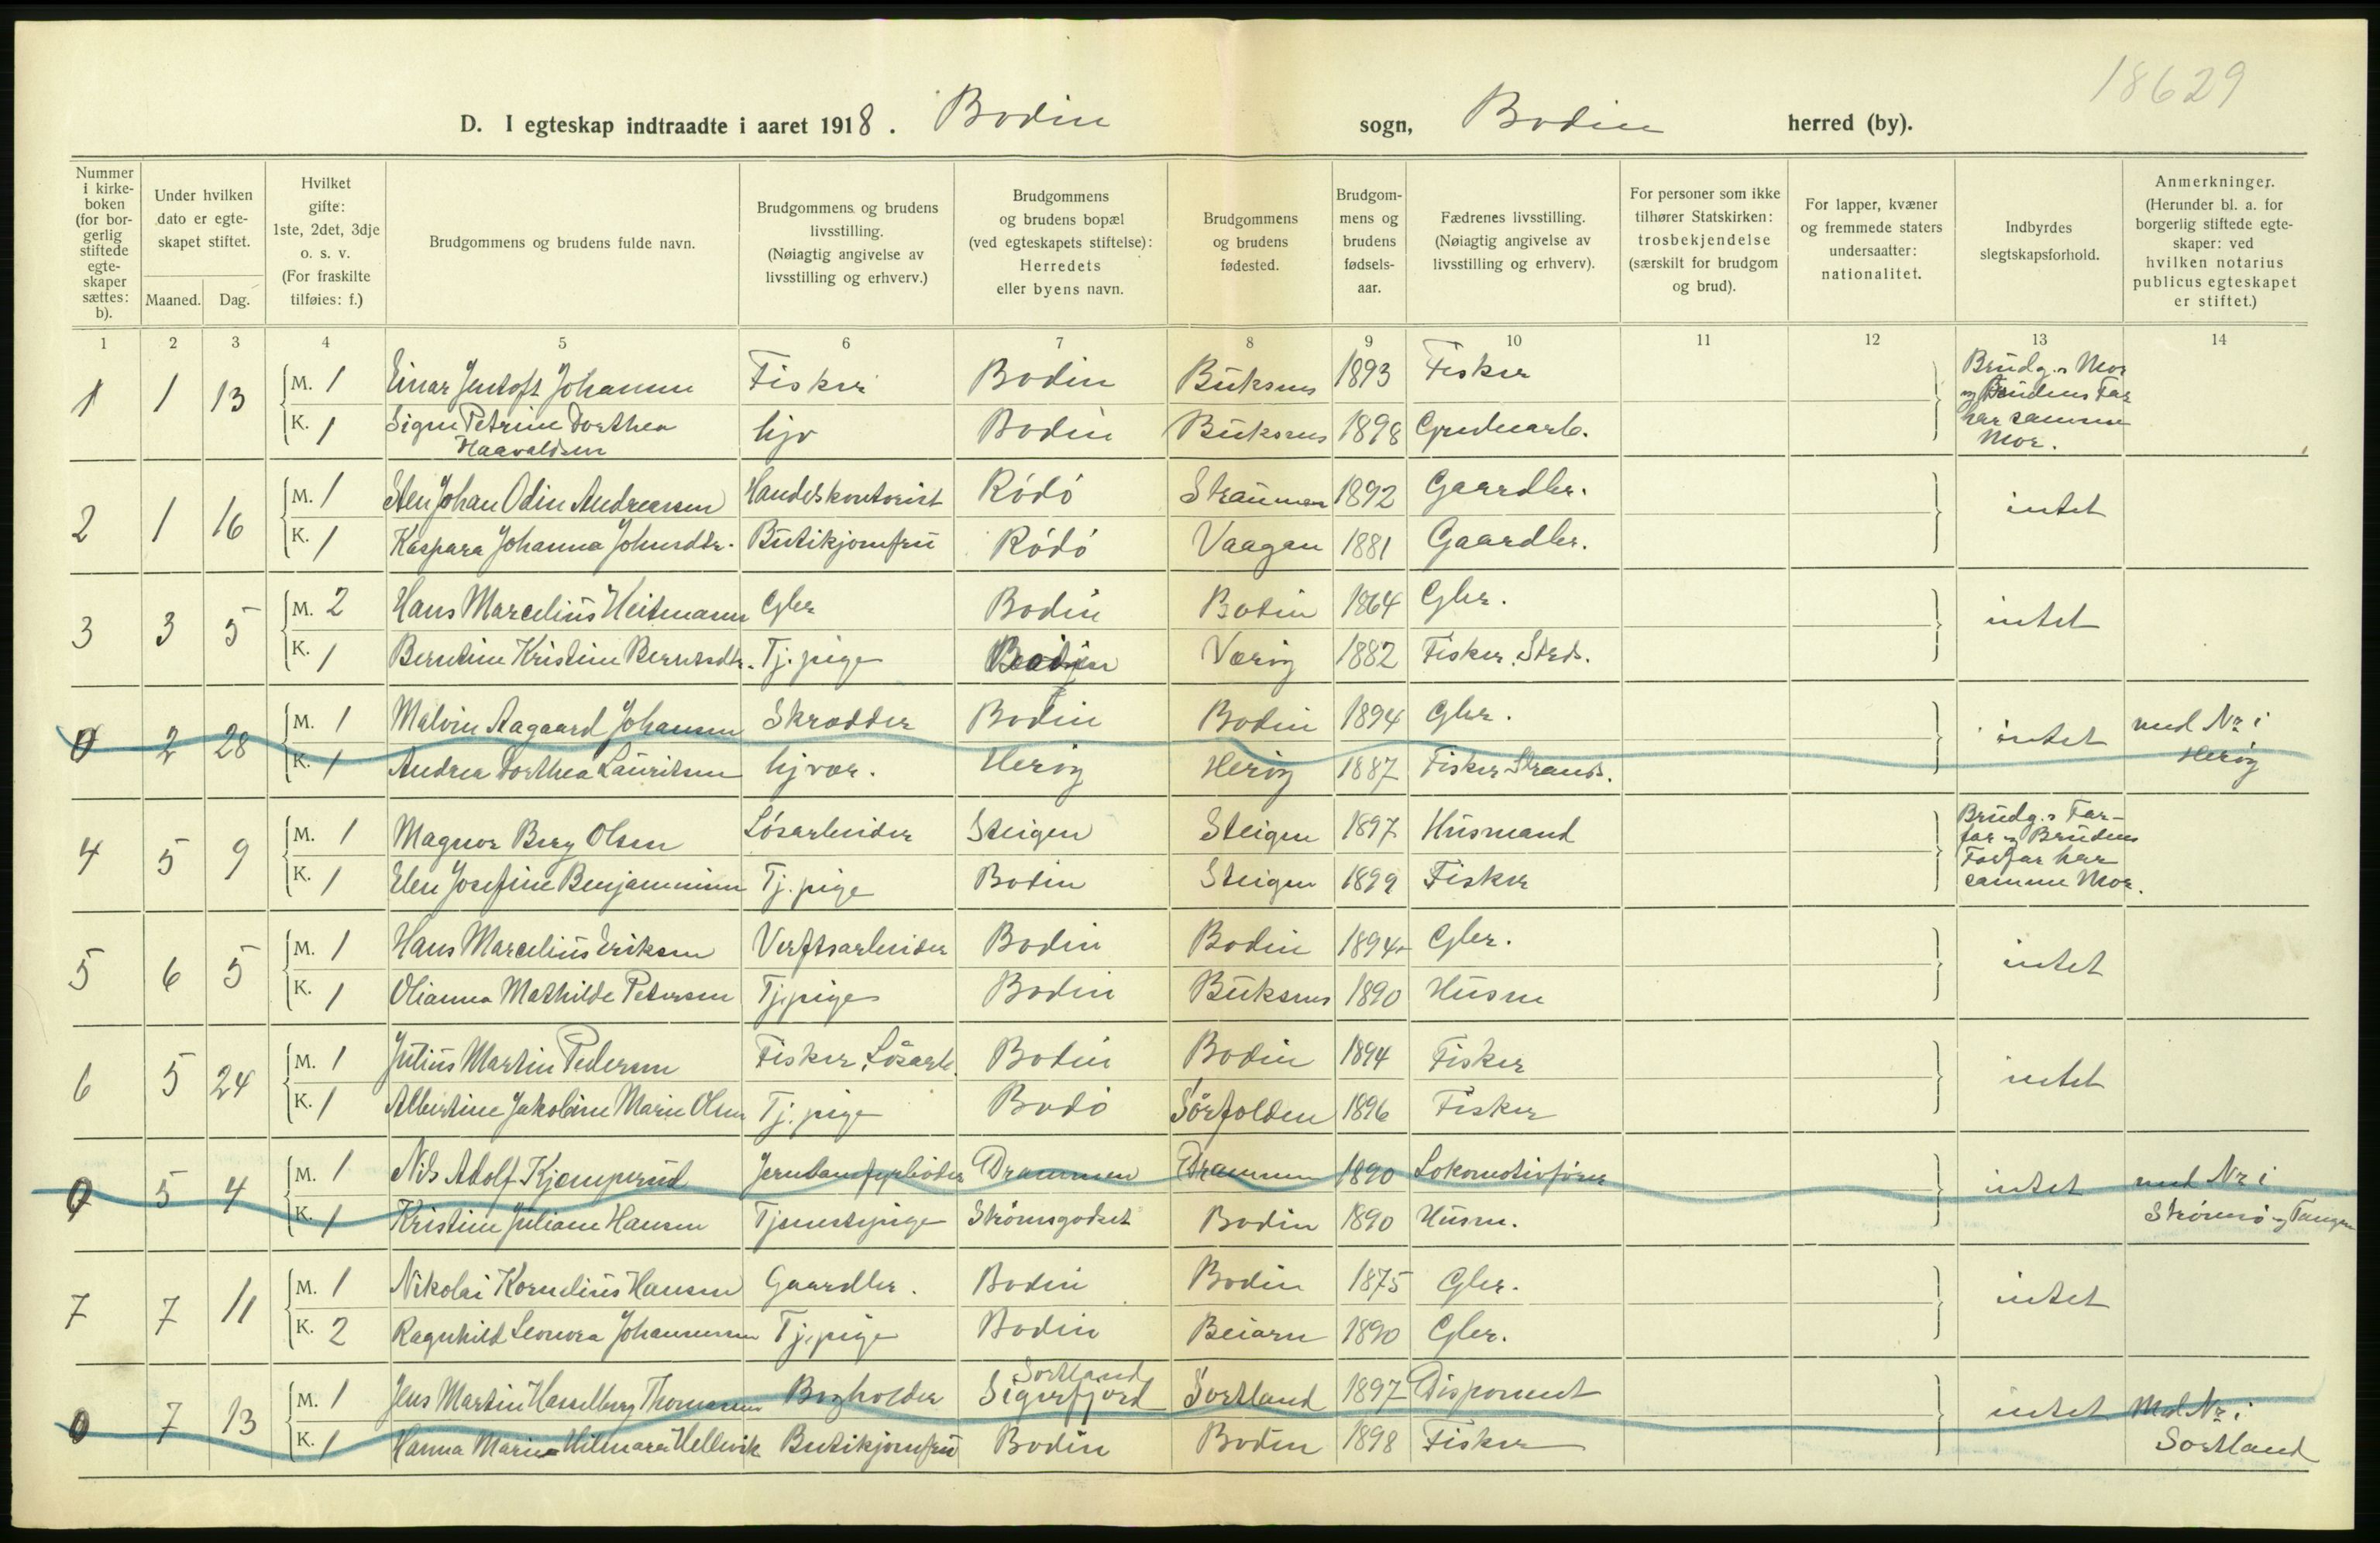 18629
D. I egteskap indtraadte i aaret 1918. Bodin sogn, Bodin herred (by).
Nummer i kirkeboken (for borgerlig stiftede egteskaper sættes: b).
Under hvilken dato er egteskapet stiftet.
Maaned. Dag.
Hvilket gifte: 1ste, 2det, 3dje o. s. v. (For fraskilte tilføies: f.)
Brudgommens og brudens fulde navn.
Brudgommens og brudens livsstilling. (Nøiagtig angivelse av livsstilling og erhverv.)
Brudgommens og brudens bopæl (ved egteskapets stiftelse): Herredets eller byens navn.
Brudgommens og brudens fødested.
Brudgommens og brudens fødselsaar.
Fædrenes livsstilling. (Nøiagtig angivelse av livsstilling og erhverv).
For personer som ikke tilhører Statskirken: trosbekjendelse (særskilt for brudgom og brud).
For lapper, kvæner og fremmede staters undersaatter: nationalitet.
Indbyrdes slegtskapsforhold.
Anmerkninger. (Herunder bl. a. for borgerlig stiftede egteskaper: ved hvilken notarius publicus egteskapet er stiftet.)
1 2 3 4 5 6 7 8 9 10 11 12 13 14
1 1 13 M. 1 Einar Jentoft Johansen Fisker Bodin Buksnes 1893 Fisker Brudg.s Mor og Brudens Far har samme Mor.
K. 1 Signe Petrine Dorthea Haavaldsen hjv Bodin Buksnes 1898 Grubearb.
2 1 16 M. 1 Sten Johan Odin Andreassen Handelskontorist Rödö Straumen 1892 Gaardbr. intet
K. 1 Kaspara Johanna Johnsdtr. Butikjomfru Rödö Vaagan 1881 Gaardbr.
3 3 5 M. 2 Hans Marcelius Heitmann Gbr Bodin Bodin 1864 Gbr. intet
K. 1 Berntine Kristine Berntsdtr. Tj. pige Bodin Værøy 1882 Fisker, Strds.
0 2 28 M. 1 Malvin Aagaard Johansen Skrædder Bodin Bodin 1894 Gbr. intet med Nr i Herøy
K. 1 Andrea Dorthea Lauritsen hjvær. Herøy Herøy 1887 Fisker Strands.
4 5 9 M. 1 Magnor Berg Olsen Lösarbeider Steigen Steigen 1897 Husmand Brudg.s Farfar og Brudens Farfar har samme Mor.
K. 1 Elen Josefine Benjaminsen Tj. pige Bodin Steigen 1899 Fisker
5 6 5 M. 1 Hans Marcelius Eriksen Verftsarbeider Bodin Bodin 1894 Gbr. intet
K. 1 Olianna Mathilde Petersen Tj. pige Bodin Buksnes 1890 Husm
6 5 24 M. 1 Julius Martin Pedersen Fisker, Lösarb. Bodin Bodin 1894 Fisker intet
K. 1 Albertine Jakobine Marie Olsen Tj. pige Bodö Sörfolden 1896 Fisker
0 5 4 M. 1 Nils Adolf Kjemperud Jernbanefyrböter Drammen Drammen 1890 Lokomotivförer intet med Nr i Strömsö og Tangen
K. 1 Kristine Juliane Hansen Tjenestepige Strömsgodset Bodin 1890 Husm.
7 7 11 M. 1 Nikolai Kornelius Hansen Gaardbr. Bodin Bodin 1875 Gbr. intet
K. 2 Ragnhild Leonora Johannessen Tj. pige Bodin Beiarn 1890 Gbr.
0 7 13 M. 1 Jens Martin Hasselberg Thomassen Bogholder Sortland Sigerfjord Sortland 1897 Disponent intet Med Nr i Sortland
K. 1 Hanna Marie Hilmara Hellevik Butikjomfru Bodin Bodin 1898 Fisker